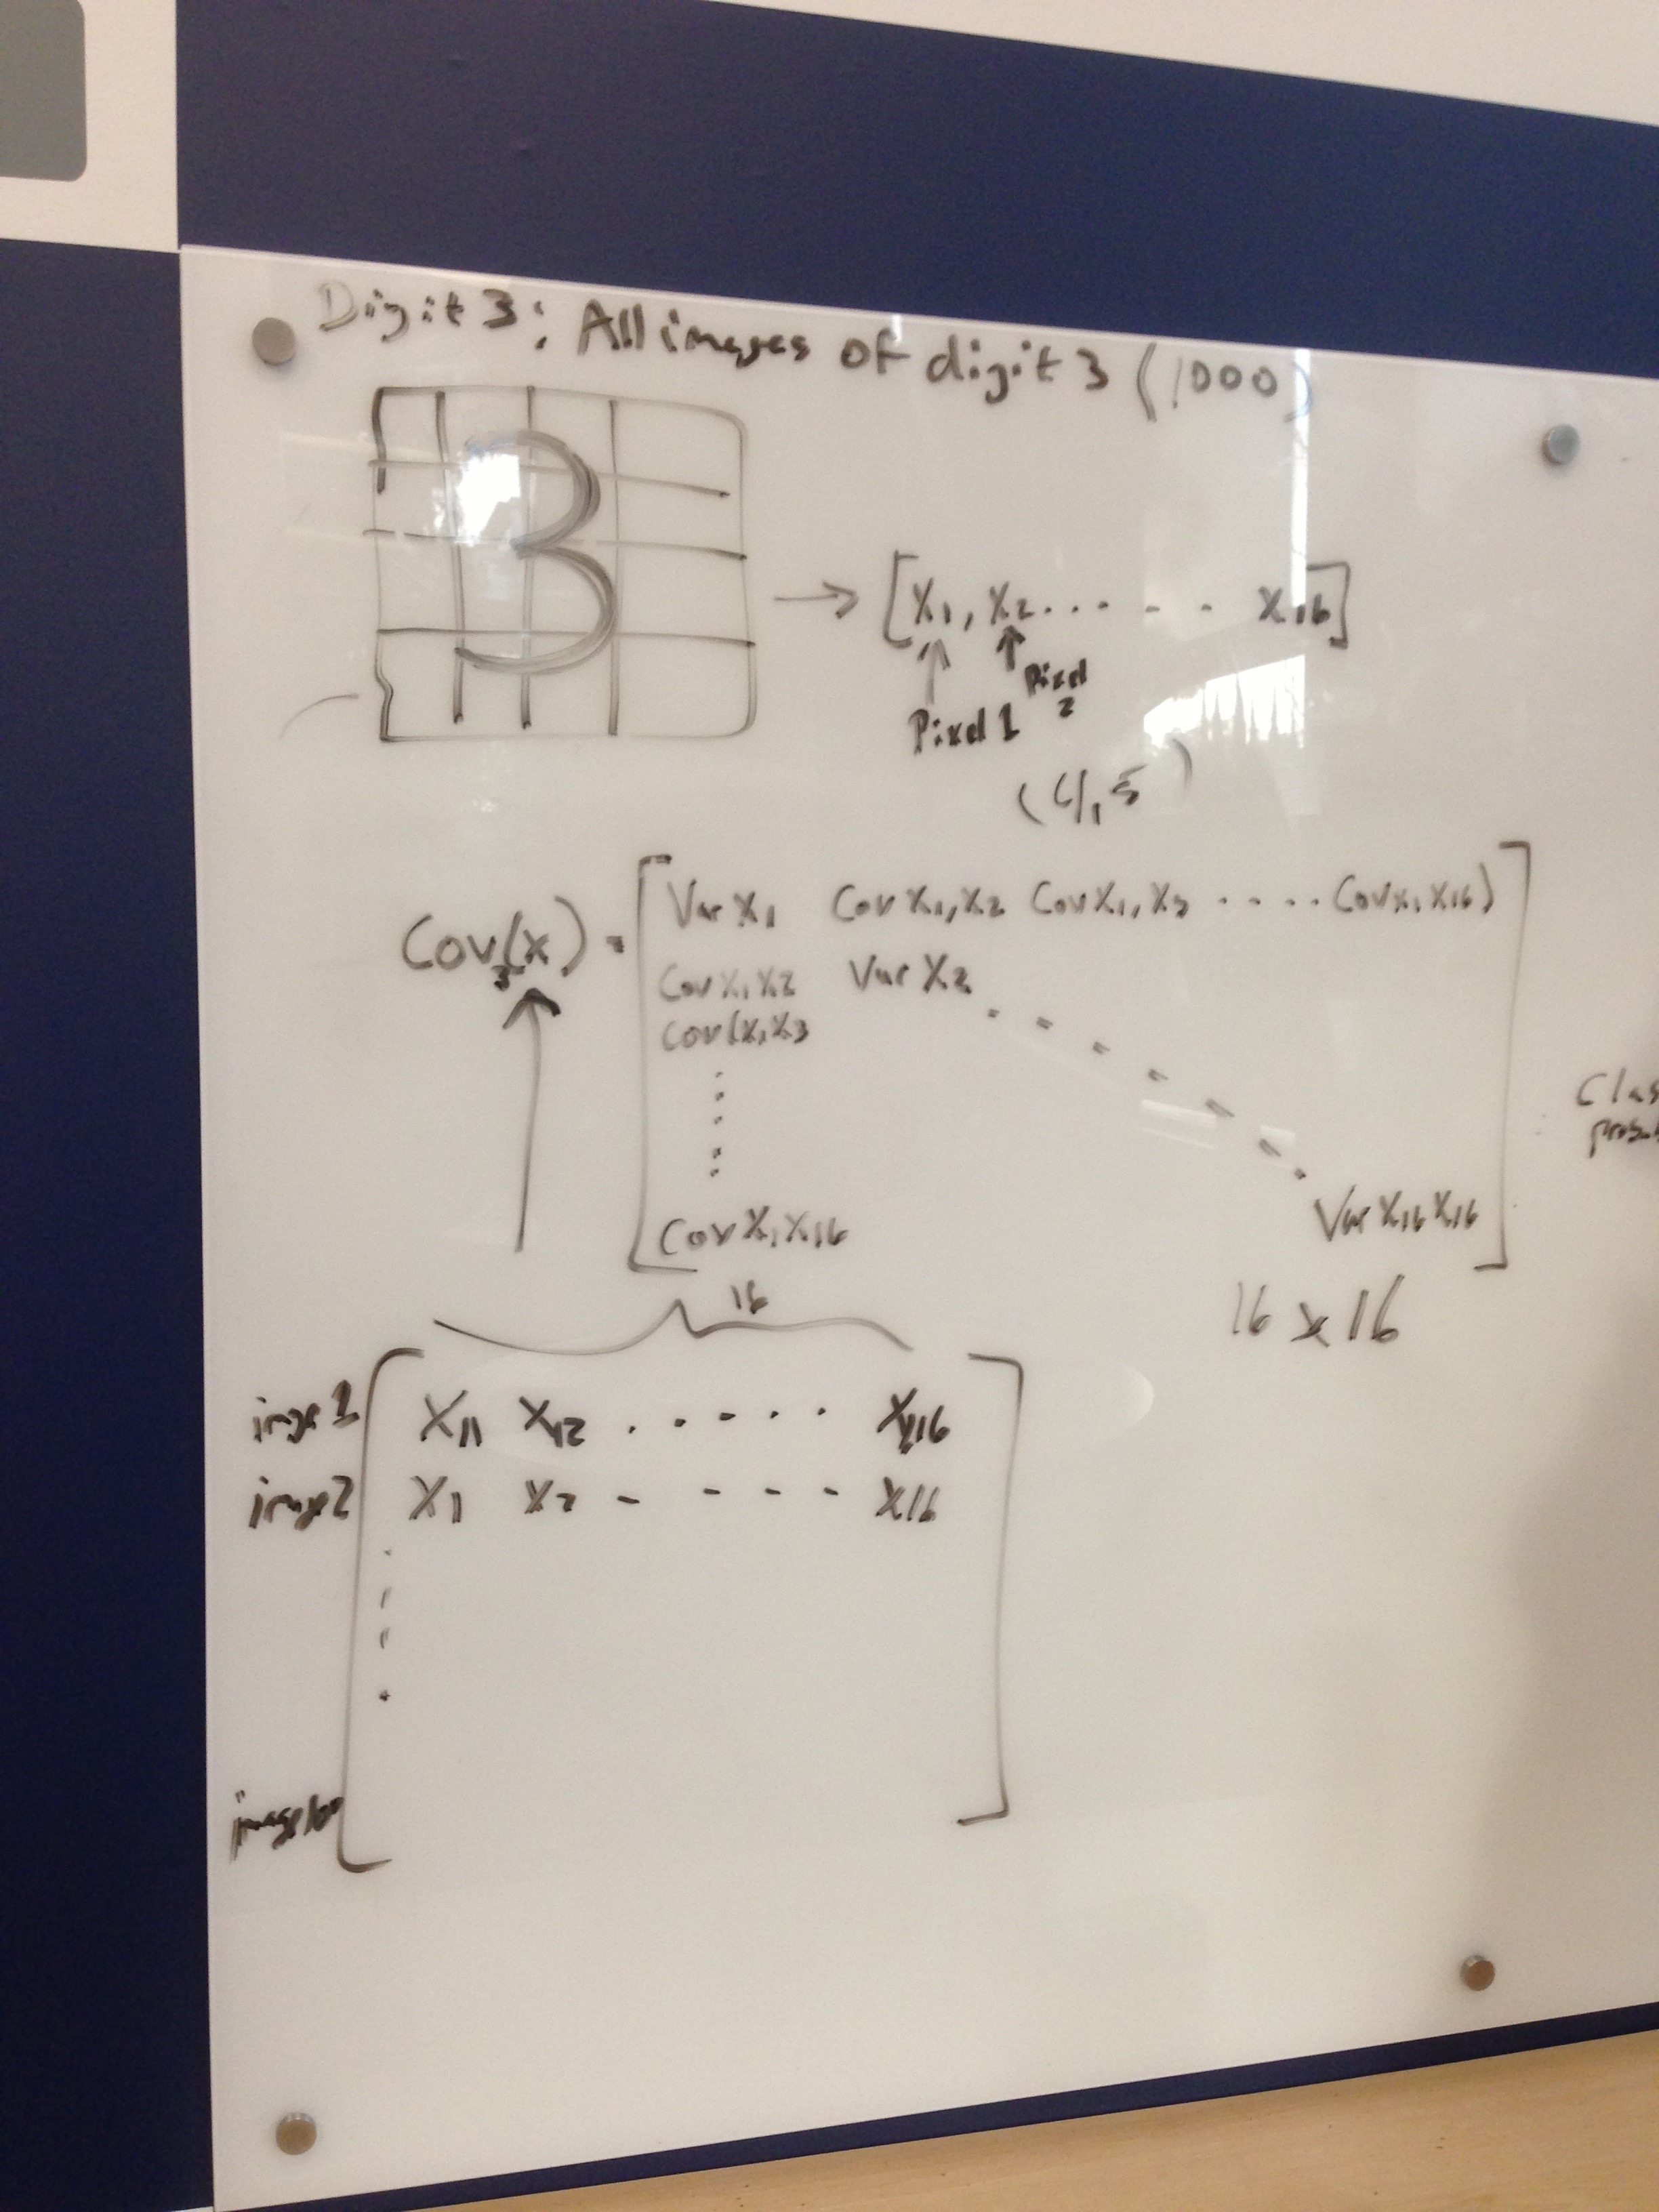 Digit 3: All images of digit 3 (1000)
3
[X1, X2 . . . . . . X16]
Pixel 1 Pixel 2
(4,5)
Cov3(x) = [Var X1 Cov X1,X2 Cov X1,X3 . . . . Cov X1 X16)]
Cov X1X2 Var X2
Cov(X1X3
Cov X1X16 Var X16 X16
16 x 16
16
image 1 X11 X12 . . . . . X116
image 2 X1 X2 - - - - X16